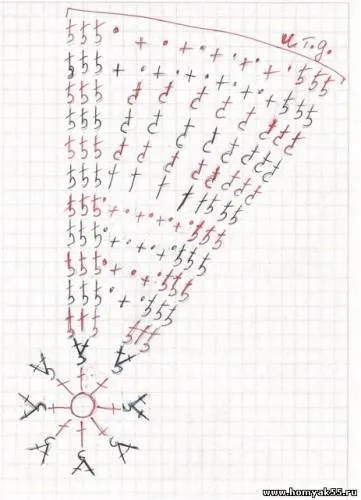 и т.д.
www.homyak55.ru